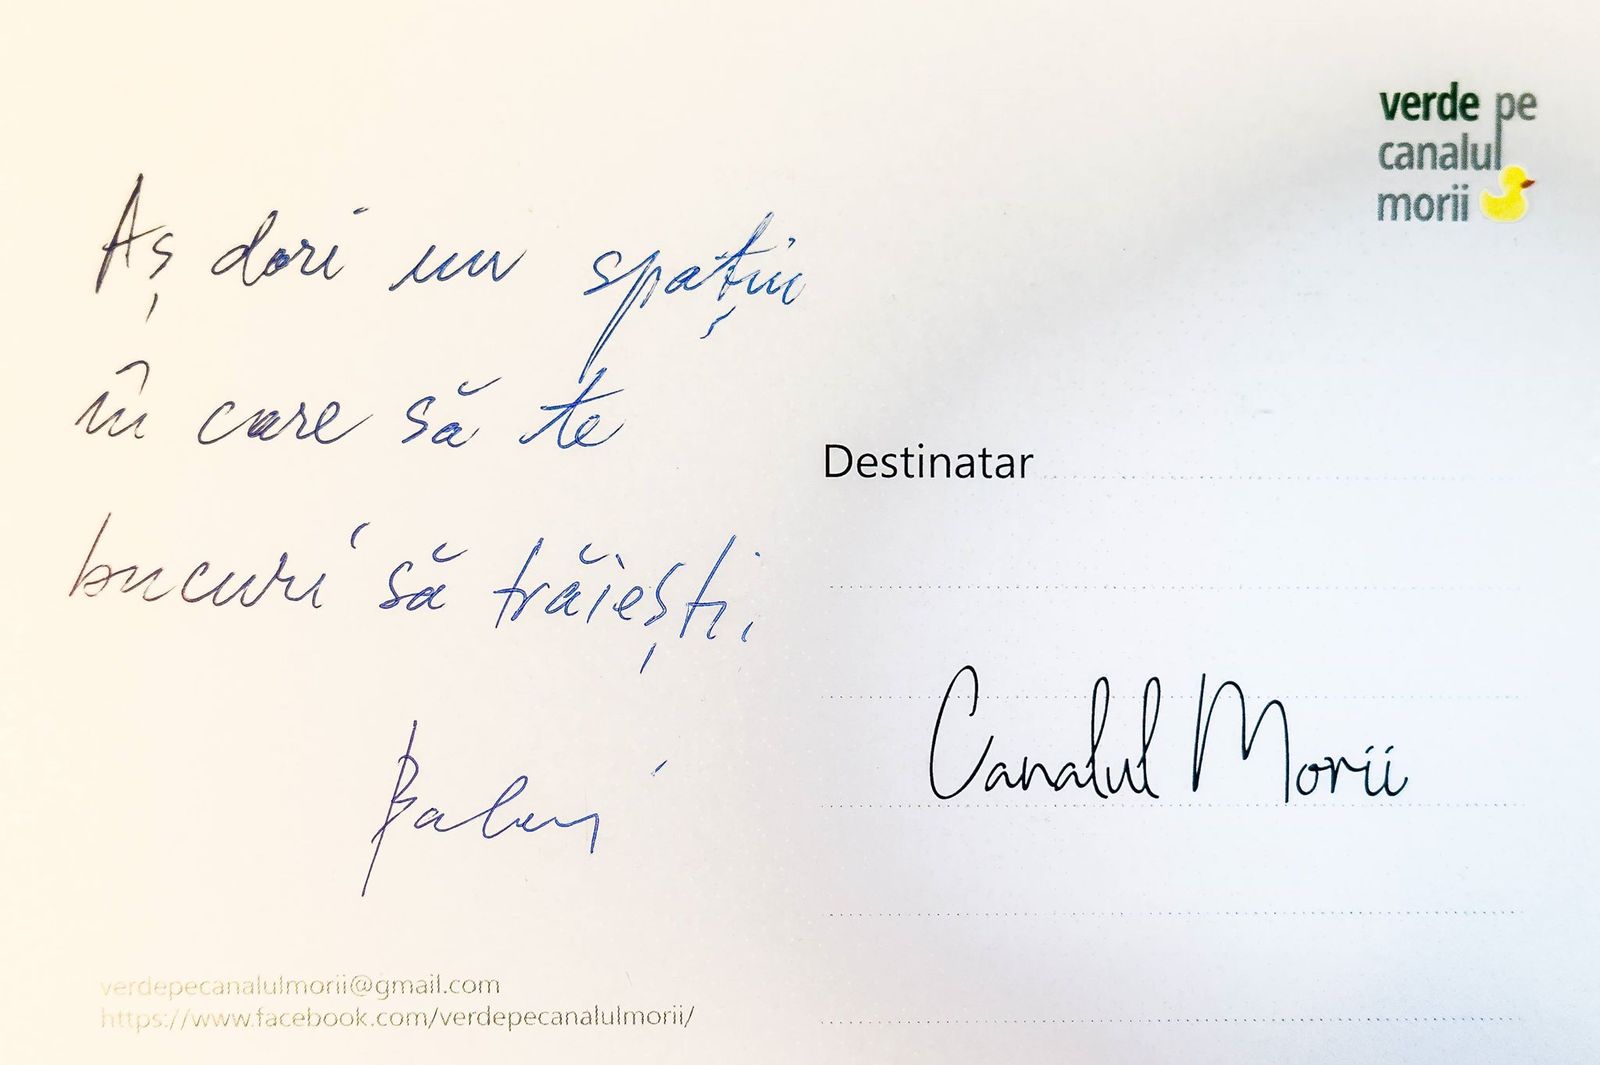 Aș dori un spațiu
în care să te
bucuri să trăiești.
verdepecanalulmorii@gmail.com
https://www.facebook.com/verdepecanalulmorii/
verde pe
canalul
morii
Destinatar
Canalul Morii